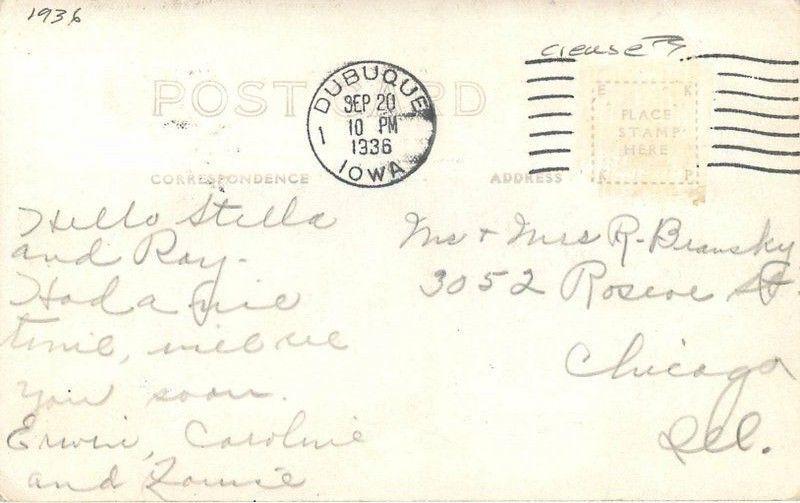 1936
crease
POST CARD
DUBUQUE
SEP 20
10 PM
1936
1
IOWA
E K
PLACE
STAMP
HERE
K P
CORRESPONDENCE
ADDRESS
Hello Stella
and Ray.
Had a fine
time, will see
you soon.
Erwin, Caroline
and Louise
Mr + Mrs R. Bransky
3052 Roscoe St.
Chicago
Ill.